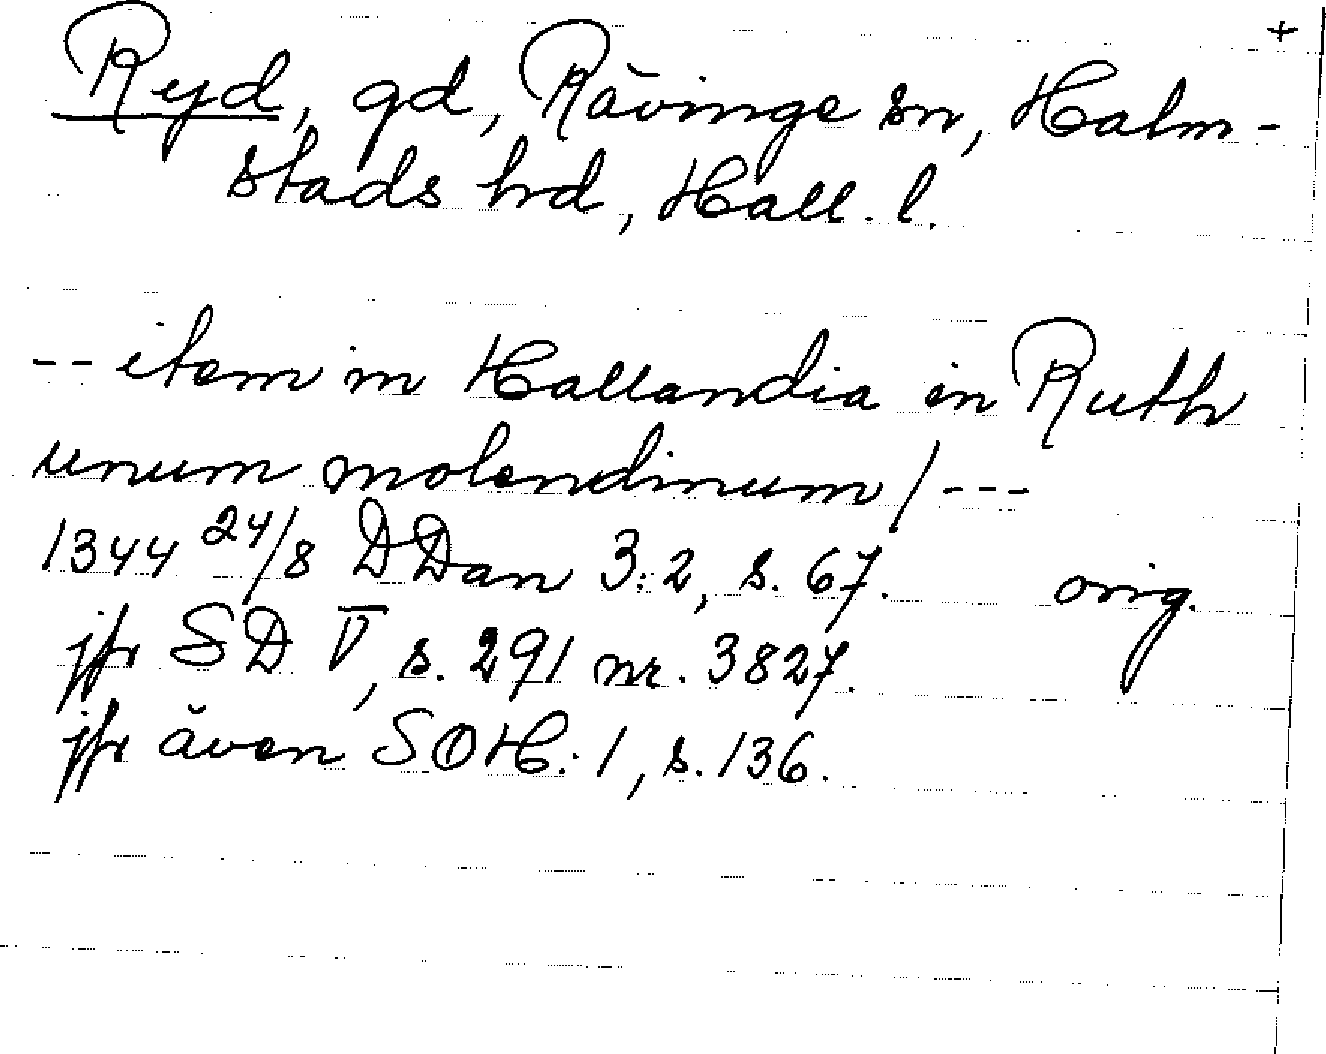 +
Ryd, gd, Rävinge sn, Halm-
stads hd, Hall. l.
-- item in Hallandia in Ruth
unum molendinum / ---
1344 24/8 DDan 3:2, s. 67. orig.
jfr SD V, s. 291 nr. 3827.
jfr även SOH: 1, s. 136.